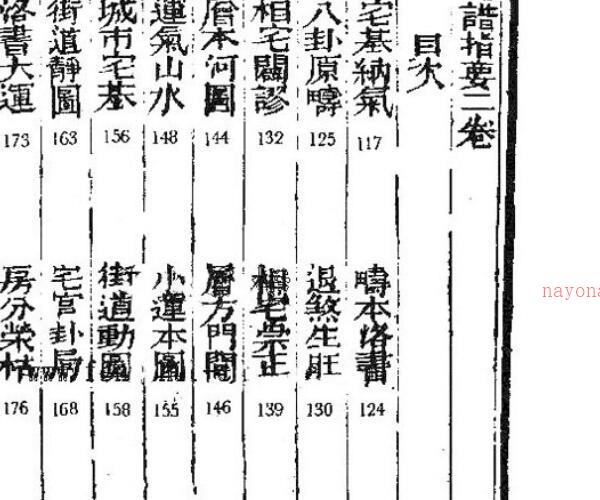 譜指要二卷
目次
宅基納氣 117
疇本洛書 124
八卦原疇 125
退煞生旺 130
相宅闢謬 132
相宅崇正 139
層本河圖 144
層方門閭 146
運氣山水 148
小運本圖 155
城市宅基 156
街道動圖 158
街道靜圖 163
宅宮卦局 168
洛書大運 173
房分榮枯 176
nayona